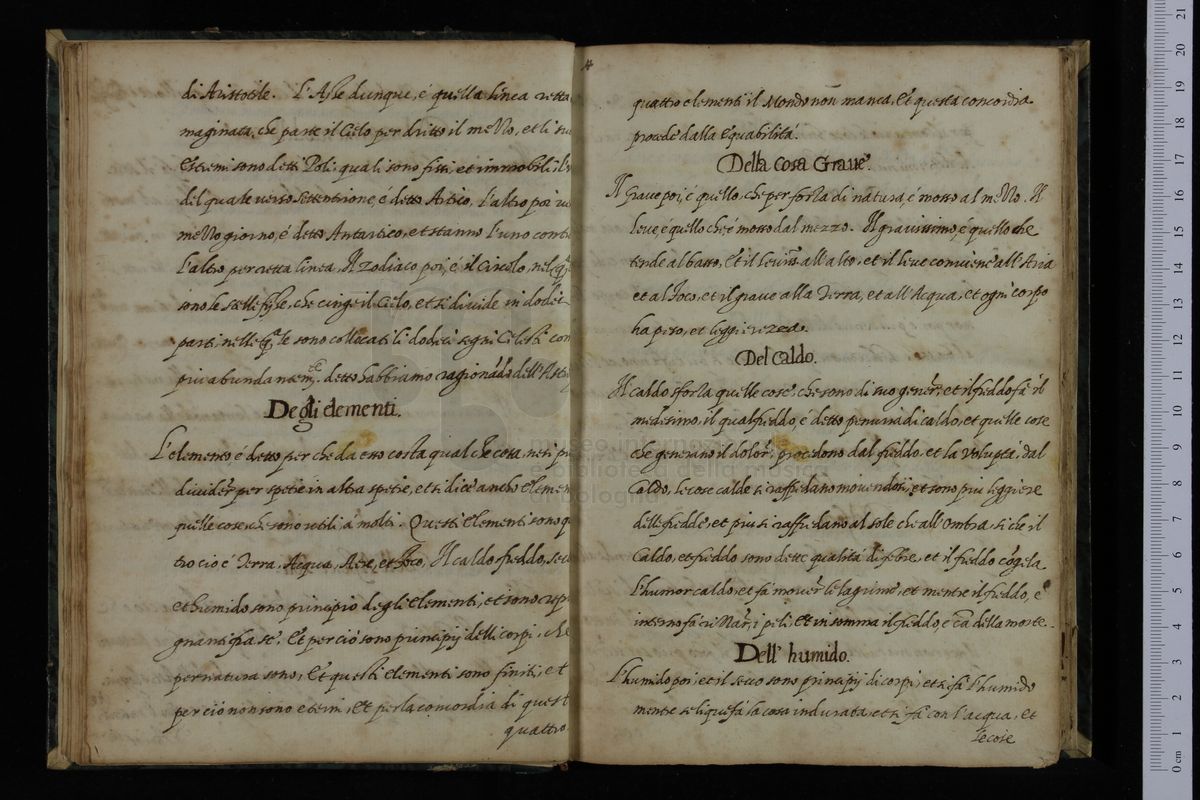 di Aristotile. L'Asse dunque, è quella linea retta
maginata, che parte il Cielo per dritto il mezzo, et li
Estremi sono detti Poli: quali sono fissi, et immobili
del quale verso settentrione, è detto Artico, l'altro poi
mezzo giorno, è detto Antartico, et stanno l'uno
l'altro per retta linea, Il Zodiaco poi, è il Circolo, nel
sono le stelle fisse, che cinge il Cielo, et si divide in
parti nelle sono collocati li dodeci segni Celesti
più detto habbiamo ragionado
Degli elementi.
L'elemento è detto per che da esso costa qual che cosa, ne si
divider per spetie in altra spetie, et si dice ancho
quelle cose, che sono utili à molti. Questi Elementi sono
tro cio è Terra, Acqua, Aere, et foco, Il caldo freddo,
et humido sono principio degli elementi, et sono
gnanti fra sè. Et per ciò sono principij delli corpi, che
per natura sono, Et questi elementi sono finiti, et
per ciò non sono eterni, Et per la concordia di
quattro
quattro elementi il Mondo non manca, Et questa concordia
procede dalla Equabilità.
Della cosa Grave.
Il Grave poi, è quello, che per forza di natura, è mosso al mezzo. Il
leve, è quello che è mosso dal mezzo. Il gravissimo, è quello che
tende al basso, Et il all'alto, et il leve conviene all'Aria
et al foco, et il grave alla Terra, et all'Acqua, et ogni corpo
ha peso, et leggierezza.
Del Caldo.
Il caldo sforza quelle cose, che sono di suo gener, et il freddo fà il
medesimo, il qual freddo, è detto penuria di caldo, et quelle cose
che generano il dolor, procedono dal freddo, et la Voluptà, dal
Caldo, le cose calde si raffredano movendosi, et sono più leggiere
delle fredde, et più si raffredano al sole che all'Ombra, si che il
Caldo, et freddo sono dette qualità di febre, et il freddo cõgela
l'humor caldo, et fà mover le lagrime, et mentre il freddo, è
interno fà rizzar, i peli, Et in somma il freddo, è cã della morte.
Dell' humido.
L'humido poi, et il secco sono principij di corpi, et si fà l'humido
mentre se liquefà la cosa indurata, et si fà con l'acqua, et
le cose